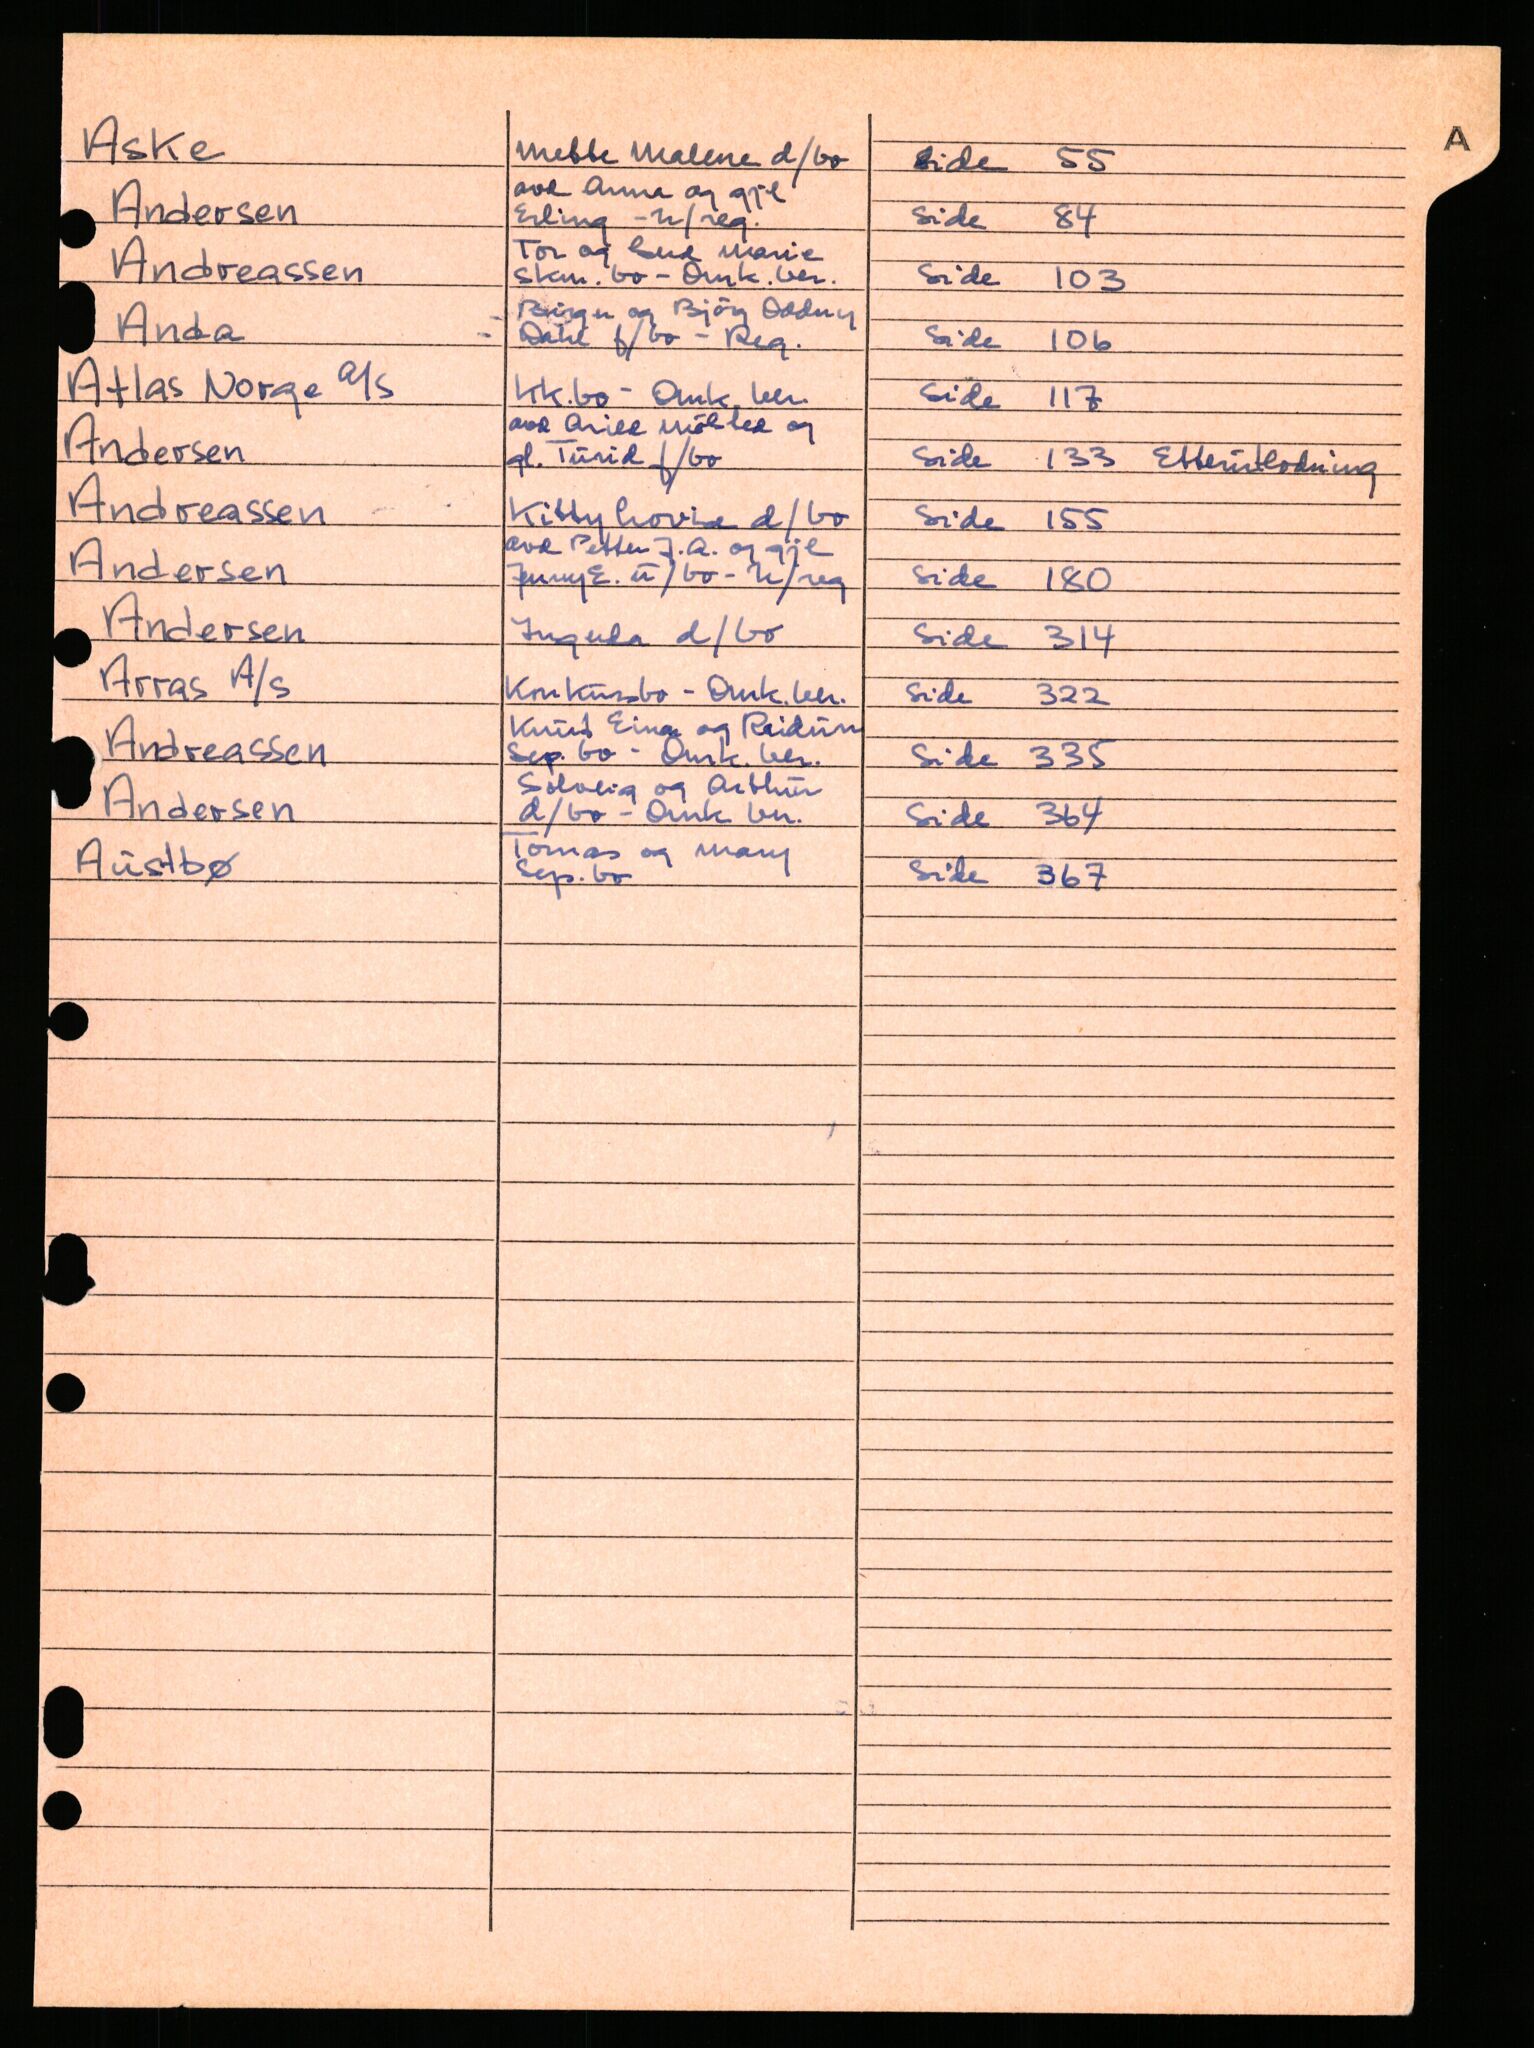 A
Aske Mette Malene d/bo Side 55
avd Anna og gjl
Andersen Erling - u/reg. Side 84
Tor og Marie
Andreassen skm. bo - Omk. ber. Side 103
Birger og Björy Oddny
Anda Dahl f/bo - Reg. Side 106
Atlas Norge a/s KK.bo - Omk. ber. Side 117
avd og
Andersen gl. Turid f/bo Side 133 Etterutlodning
Andreassen Kitty Lovise d/bo Side 155
avd Petter J. A. og gjl
Andersen Jenny E. u/bo - u/reg Side 180
Andersen d/bo Side 314
Arras A/s Konkursbo - Omk. ber. Side 322
Knut Einar og Reidun
Andreassen Sep. bo - Omk. ber. Side 335
Solveig og Arthur
Andersen d/bo - Omk ber. Side 364
Tomas og Mary
Austbø Sep. bo Side 367